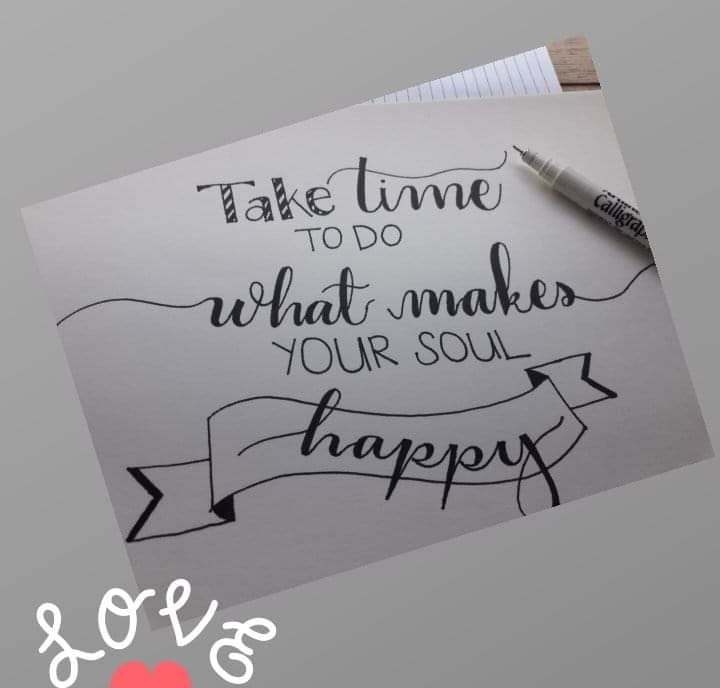 Take time
TO DO
what makes
YOUR SOUL
happy
Calligrap
LOVE